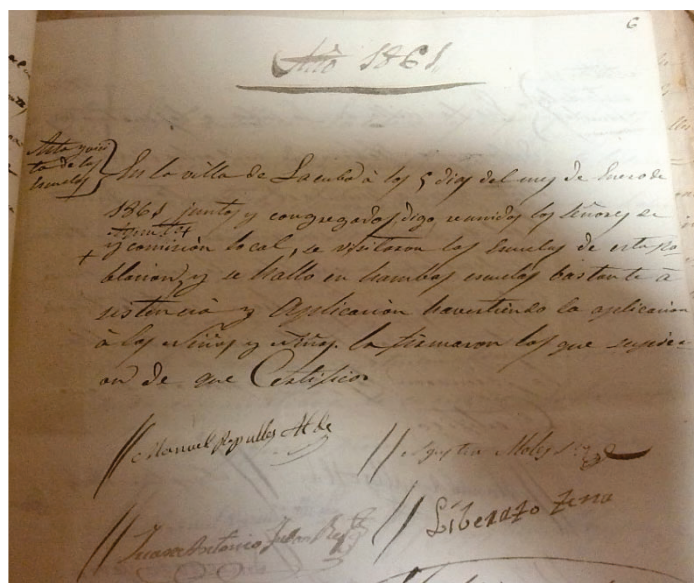 6
Año 1861
Acta y visi
ta de las
Escuelas
En la villa de Lacuba à los 5 dias del mes de Enero de
1861 juntos y congregados, digo reunidos los Señores de
y comision local, se visitaron las Escuelas de esta Po
blacion, y se hallo en hambas escuelas bastante à
sistencia y Aplicacion havertiendo la aplicacion
à los Niños y Niñas. lo firmaron los que supier
on de que Certifico
Manuel Repulles Alde
Agustin Moles
Juan Antonio Julian
Liberato Zena